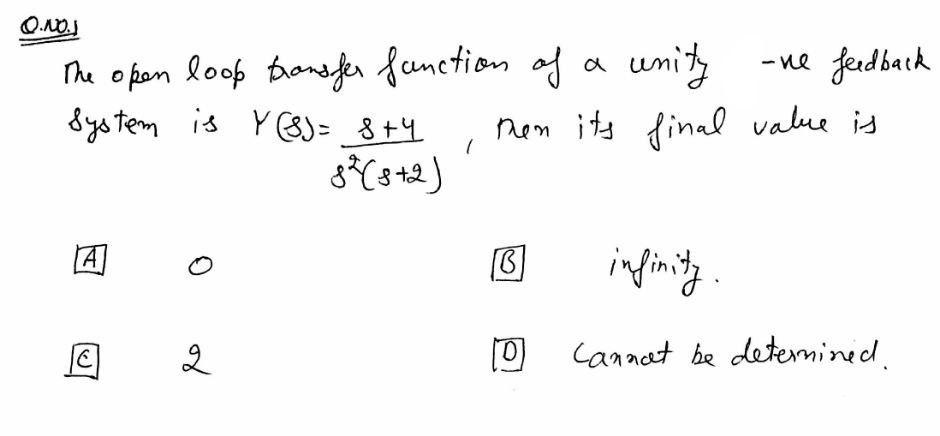 Q.NO.1
The open loop transfer function of a unity -ve feedback
System is Y(s)= s+4 / s²(s+2) , then its final value is
A 0 B infinity.
C 2 D Cannot be determined.